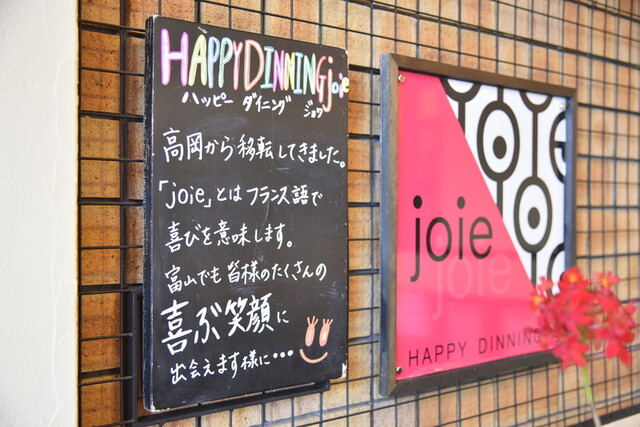 HAPPY DINNING joie
ハッピー ダイニング ジョワ
高岡から移転してきました。
「joie」とはフランス語で
喜びを意味します。
富山でも皆様のたくさんの
喜ぶ笑顔に
出会えます様に・・・
joie
joie
HAPPY DINNING